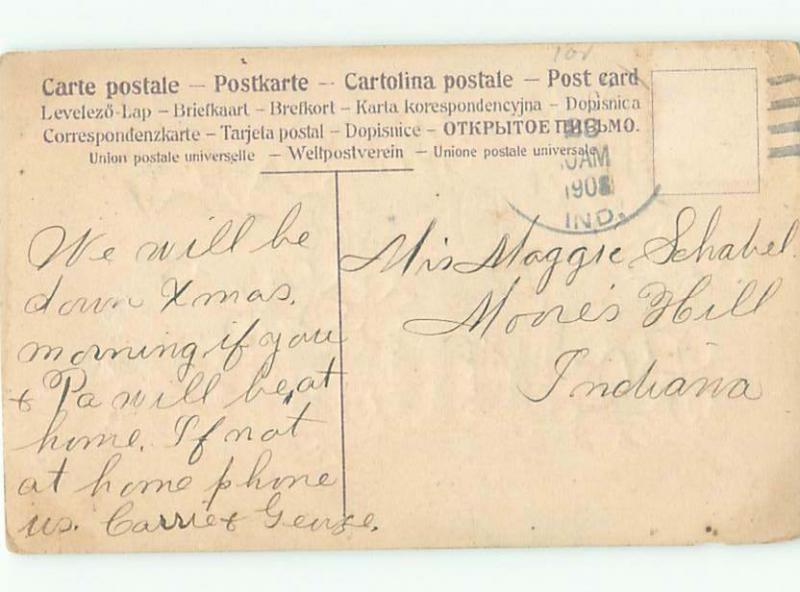 Carte postale — Postkarte — Cartolina postale — Post card
Levelező-Lap — Briefkaart — Brefkort — Karta korespondencyjna — Dopisnica
Correspondenzkarte — Tarjeta postal — Dopisnice — ОТКРЫТОЕ ПИСЬМО.
Union postale universelle — Weltpostverein — Unione postale universale
AM
1908
IND.
We will be
down Xmas.
morning if you
& Pa will be at
home. If not
at home phone
us. Carrie & George.
Mis Maggie Schabel.
Moore's Hill
Indiana